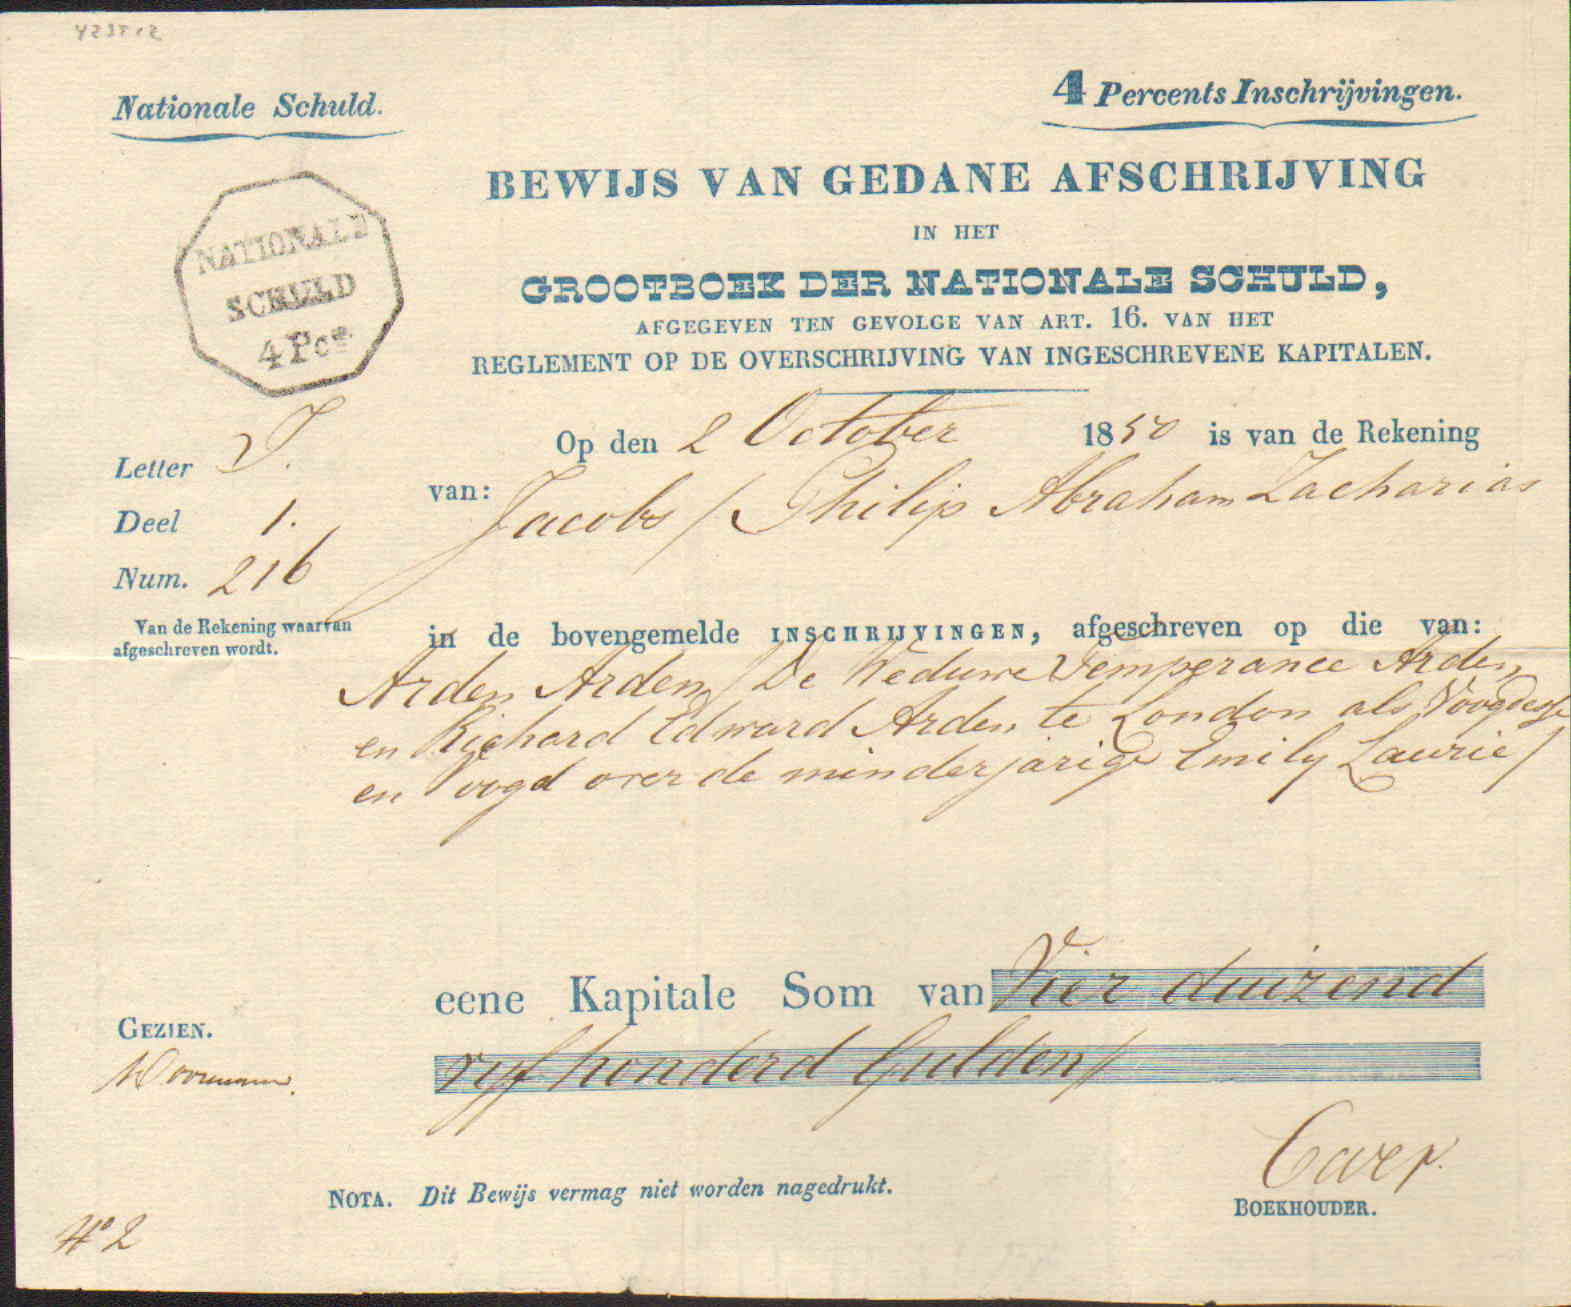 Nationale Schuld.
4 Percents Inschrijvingen.
NATIONALE
SCHULD
4 Pct
BEWIJS VAN GEDANE AFSCHRIJVING
IN HET
GROOTBOEK DER NATIONALE SCHULD,
AFGEGEVEN TEN GEVOLGE VAN ART. 16. VAN HET
REGLEMENT OP DE OVERSCHRIJVING VAN INGESCHREVENE KAPITALEN.
Letter J.
Deel 1.
Num. 216
Van de Rekening waarvan
afgeschreven wordt.
Op den 2 October 1850 is van de Rekening
van: Jacobs / Philip Abraham Zacharias
in de bovengemelde INSCHRIJVINGEN, afgeschreven op die van:
Arden Arden / De Weduwe Temperance Arden
en Richard Edward Arden te London als Voogdesse
en Voogd over de minderjarige Emily Laurie /
eene Kapitale Som van Vier duizend
vyf honderd Gulden /
GEZIEN.
BOEKHOUDER.
NOTA. Dit Bewijs vermag niet worden nagedrukt.
No 2